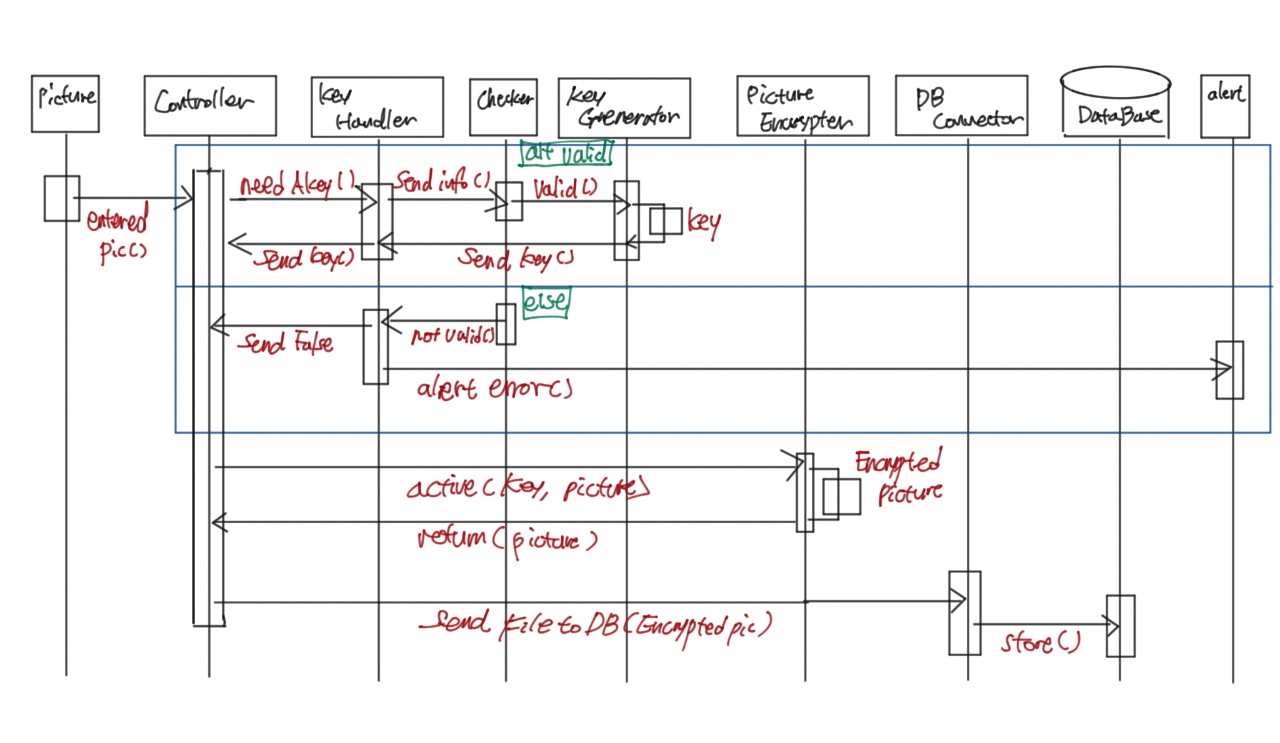 Picture
Controller
Key
Handler
Checker
Key
Generator
Picture
Encrypter
DB
Connector
DataBase
alert
alt valid
need Akey()
Send info()
Valid()
entered
pic()
key
Send key()
Send key()
else
Send False
not valid()
alert error()
active(key, picture)
Encrypted
picture
return(picture)
Send File to DB(Encrypted pic)
store()